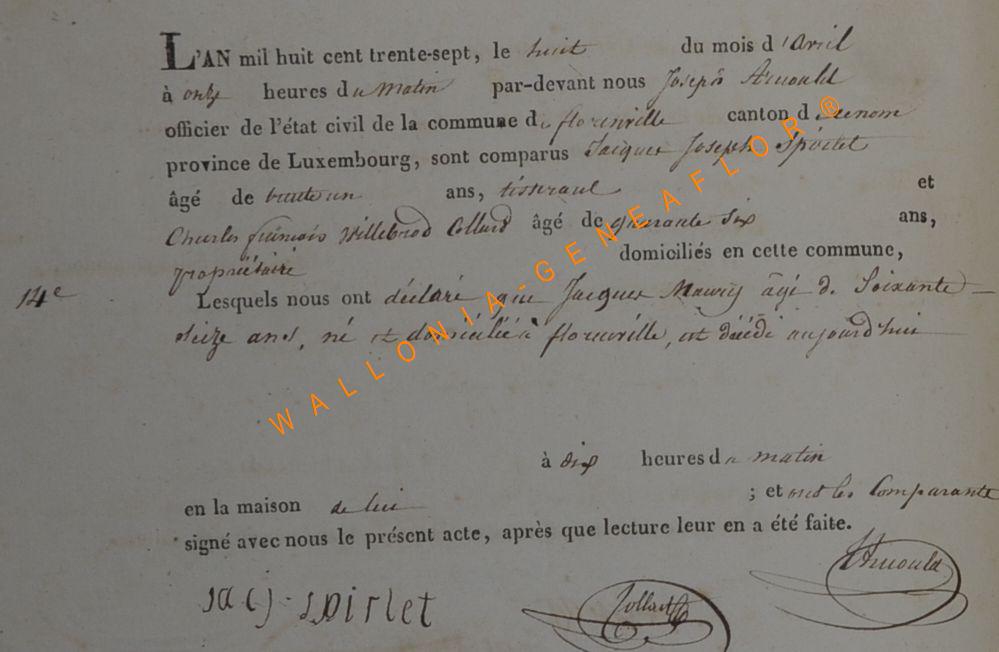 L'AN mil huit cent trente-sept, le huit du mois d'Avril
à onze heures du matin par-devant nous Joseph Arnould
officier de l'état civil de la commune de florenville canton d
province de Luxembourg, sont comparus Jacques Joseph Spirlet
âgé de trente un ans, tisserand et
Charles françois Willebrod Collard âgé de quarante six ans,
propriétaire domiciliés en cette commune,
14e Lesquels nous ont déclaré que Jacques Mawry âgé de Soixante
seize ans, né et domicilié à florenville, est décédé aujourd'hui
à dix heures du matin
en la maison de lui ; et ont les Comparants
signé avec nous le présent acte, après que lecture leur en a été faite.
Jacq-spirlet Collard Arnould
WALLONIA-GENEAFLOR ®